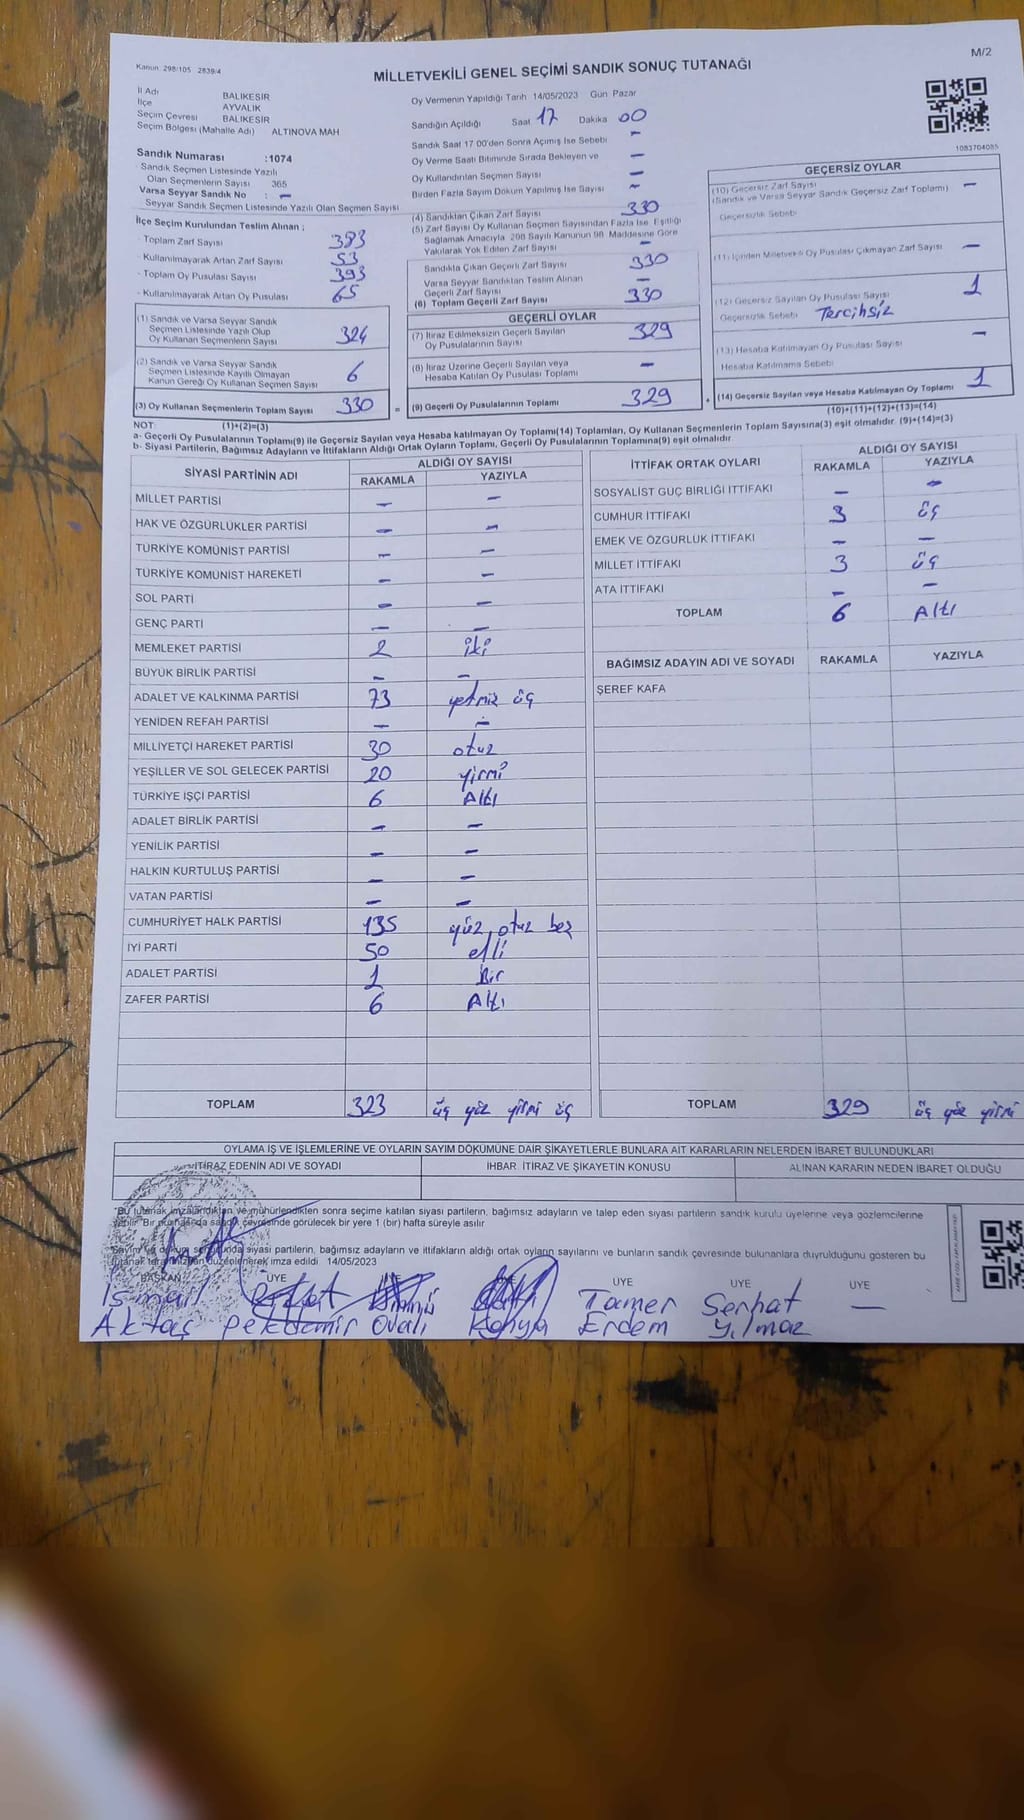 Kanun 298/105 2839/4
M/2
MİLLETVEKİLİ GENEL SEÇİMİ SANDIK SONUÇ TUTANAĞI
İl Adı BALIKESİR
İlçe AYVALIK
Seçim Çevresi BALIKESİR
Seçim Bölgesi (Mahalle Adı) ALTINOVA MAH
Sandık Numarası :1074
Sandık Seçmen Listesinde Yazılı
Olan Seçmenlerin Sayısı 365
Varsa Seyyar Sandık No : -
Seyyar Sandık Seçmen Listesinde Yazılı Olan Seçmen Sayısı
İlçe Seçim Kurulundan Teslim Alınan ;
- Toplam Zarf Sayısı 383
- Kullanılmayarak Artan Zarf Sayısı 53
- Toplam Oy Pusulası Sayısı 393
- Kullanılmayarak Artan Oy Pusulası 65
(1) Sandık ve Varsa Seyyar Sandık
Seçmen Listesinde Yazılı Olup
Oy Kullanan Seçmenlerin Sayısı 324
(2) Sandık ve Varsa Seyyar Sandık
Seçmen Listesinde Kayıtlı Olmayan
Kanun Gereği Oy Kullanan Seçmen Sayısı 6
(3) Oy Kullanan Seçmenlerin Toplam Sayısı 330
Oy Vermenin Yapıldığı Tarih 14/05/2023 Gün Pazar
Sandığın Açıldığı Saat 17 Dakika 00
Sandık Saat 17 00'den Sonra Açılmış İse Sebebi -
Oy Verme Saati Bitiminde Sırada Bekleyen ve -
Oy Kullandırılan Seçmen Sayısı -
Birden Fazla Sayım Döküm Yapılmış İse Sayısı -
(4) Sandıktan Çıkan Zarf Sayısı 330
(5) Zarf Sayısı Oy Kullanan Seçmen Sayısından Fazla İse, Eşitliği
Sağlamak Amacıyla 298 Sayılı Kanunun 98 Maddesine Göre
Yakılarak Yok Edilen Zarf Sayısı -
Sandıkta Çıkan Geçerli Zarf Sayısı 330
Varsa Seyyar Sandıktan Teslim Alınan
Geçerli Zarf Sayısı -
(6) Toplam Geçerli Zarf Sayısı 330
GEÇERLİ OYLAR
(7) İtiraz Edilmeksizin Geçerli Sayılan
Oy Pusulalarının Sayısı 329
(8) İtiraz Üzerine Geçerli Sayılan veya
Hesaba Katılan Oy Pusulası Toplamı -
= (9) Geçerli Oy Pusulalarının Toplamı 329 +
1083704085
GEÇERSİZ OYLAR
(10) Geçersiz Zarf Sayısı
(Sandık ve Varsa Seyyar Sandık Geçersiz Zarf Toplamı) -
Geçersizlik Sebebi
(11) İçinden Milletvekili Oy Pusulası Çıkmayan Zarf Sayısı -
(12) Geçersiz Sayılan Oy Pusulası Sayısı 1
Geçersizlik Sebebi Tercihsiz
(13) Hesaba Katılmayan Oy Pusulası Sayısı -
Hesaba Katılmama Sebebi
(14) Geçersiz Sayılan veya Hesaba Katılmayan Oy Toplamı 1
NOT: (1)+(2)=(3) (10)+(11)+(12)+(13)=(14)
a- Geçerli Oy Pusulalarının Toplamı(9) ile Geçersiz Sayılan veya Hesaba katılmayan Oy Toplamı(14) Toplamları, Oy Kullanan Seçmenlerin Toplam Sayısına(3) eşit olmalıdır (9)+(14)=(3)
b- Siyasi Partilerin, Bağımsız Adayların ve İttifakların Aldığı Ortak Oyların Toplamı, Geçerli Oy Pusulalarının Toplamına(9) eşit olmalıdır
SİYASİ PARTİNİN ADI ALDIĞI OY SAYISI
RAKAMLA YAZIYLA
MİLLET PARTİSİ - -
HAK VE ÖZGÜRLÜKLER PARTİSİ - -
TÜRKİYE KOMÜNİST PARTİSİ - -
TÜRKİYE KOMÜNİST HAREKETİ - -
SOL PARTİ - -
GENÇ PARTİ - -
MEMLEKET PARTİSİ 2 iki
BÜYÜK BİRLİK PARTİSİ - -
ADALET VE KALKINMA PARTİSİ 73 yetmiz üç
YENİDEN REFAH PARTİSİ - -
MİLLİYETÇİ HAREKET PARTİSİ 30 otuz
YEŞİLLER VE SOL GELECEK PARTİSİ 20 yirmi
TÜRKİYE İŞÇİ PARTİSİ 6 Altı
ADALET BİRLİK PARTİSİ - -
YENİLİK PARTİSİ - -
HALKIN KURTULUŞ PARTİSİ - -
VATAN PARTİSİ - -
CUMHURİYET HALK PARTİSİ 135 yüz otuz beş
İYİ PARTİ 50 elli
ADALET PARTİSİ 1 Bir
ZAFER PARTİSİ 6 Altı
TOPLAM 323 üç yüz yirmi üç
İTTİFAK ORTAK OYLARI ALDIĞI OY SAYISI
RAKAMLA YAZIYLA
SOSYALİST GÜÇ BİRLİĞİ İTTİFAKI - -
CUMHUR İTTİFAKI 3 üç
EMEK VE ÖZGÜRLÜK İTTİFAKI - -
MİLLET İTTİFAKI 3 üç
ATA İTTİFAKI - -
TOPLAM 6 Altı
BAĞIMSIZ ADAYIN ADI VE SOYADI RAKAMLA YAZIYLA
ŞEREF KAFA
TOPLAM 329 üç yüz yirmi
OYLAMA İŞ VE İŞLEMLERİNE VE OYLARIN SAYIM DÖKÜMÜNE DAİR ŞİKAYETLERLE BUNLARA AİT KARARLARIN NELERDEN İBARET BULUNDUKLARI
İTİRAZ EDENİN ADI VE SOYADI İHBAR, İTİRAZ VE ŞİKAYETİN KONUSU ALINAN KARARIN NEDEN İBARET OLDUĞU
"Bu tutanak imzalandıktan ve mühürlendikten sonra seçime katılan siyasi partilerin, bağımsız adayların ve talep eden siyasi partilerin sandık kurulu üyelerine veya gözlemcilerine
verilir "Bir nüshası da sandık çevresinde görülecek bir yere 1 (bir) hafta süreyle asılır
Sayım ve döküm sonucunda siyasi partilerin, bağımsız adayların ve ittifakların aldığı ortak oyların sayılarını ve bunların sandık çevresinde bulunanlara duyurulduğunu gösteren bu
tutanak tarafımızdan düzenlenerek imza edildi 14/05/2023
BAŞKAN ÜYE ÜYE ÜYE ÜYE ÜYE
İsmail Tamer Serhat -
Aktaş Pekdemir Ovalı Konya Erdem Yılmaz